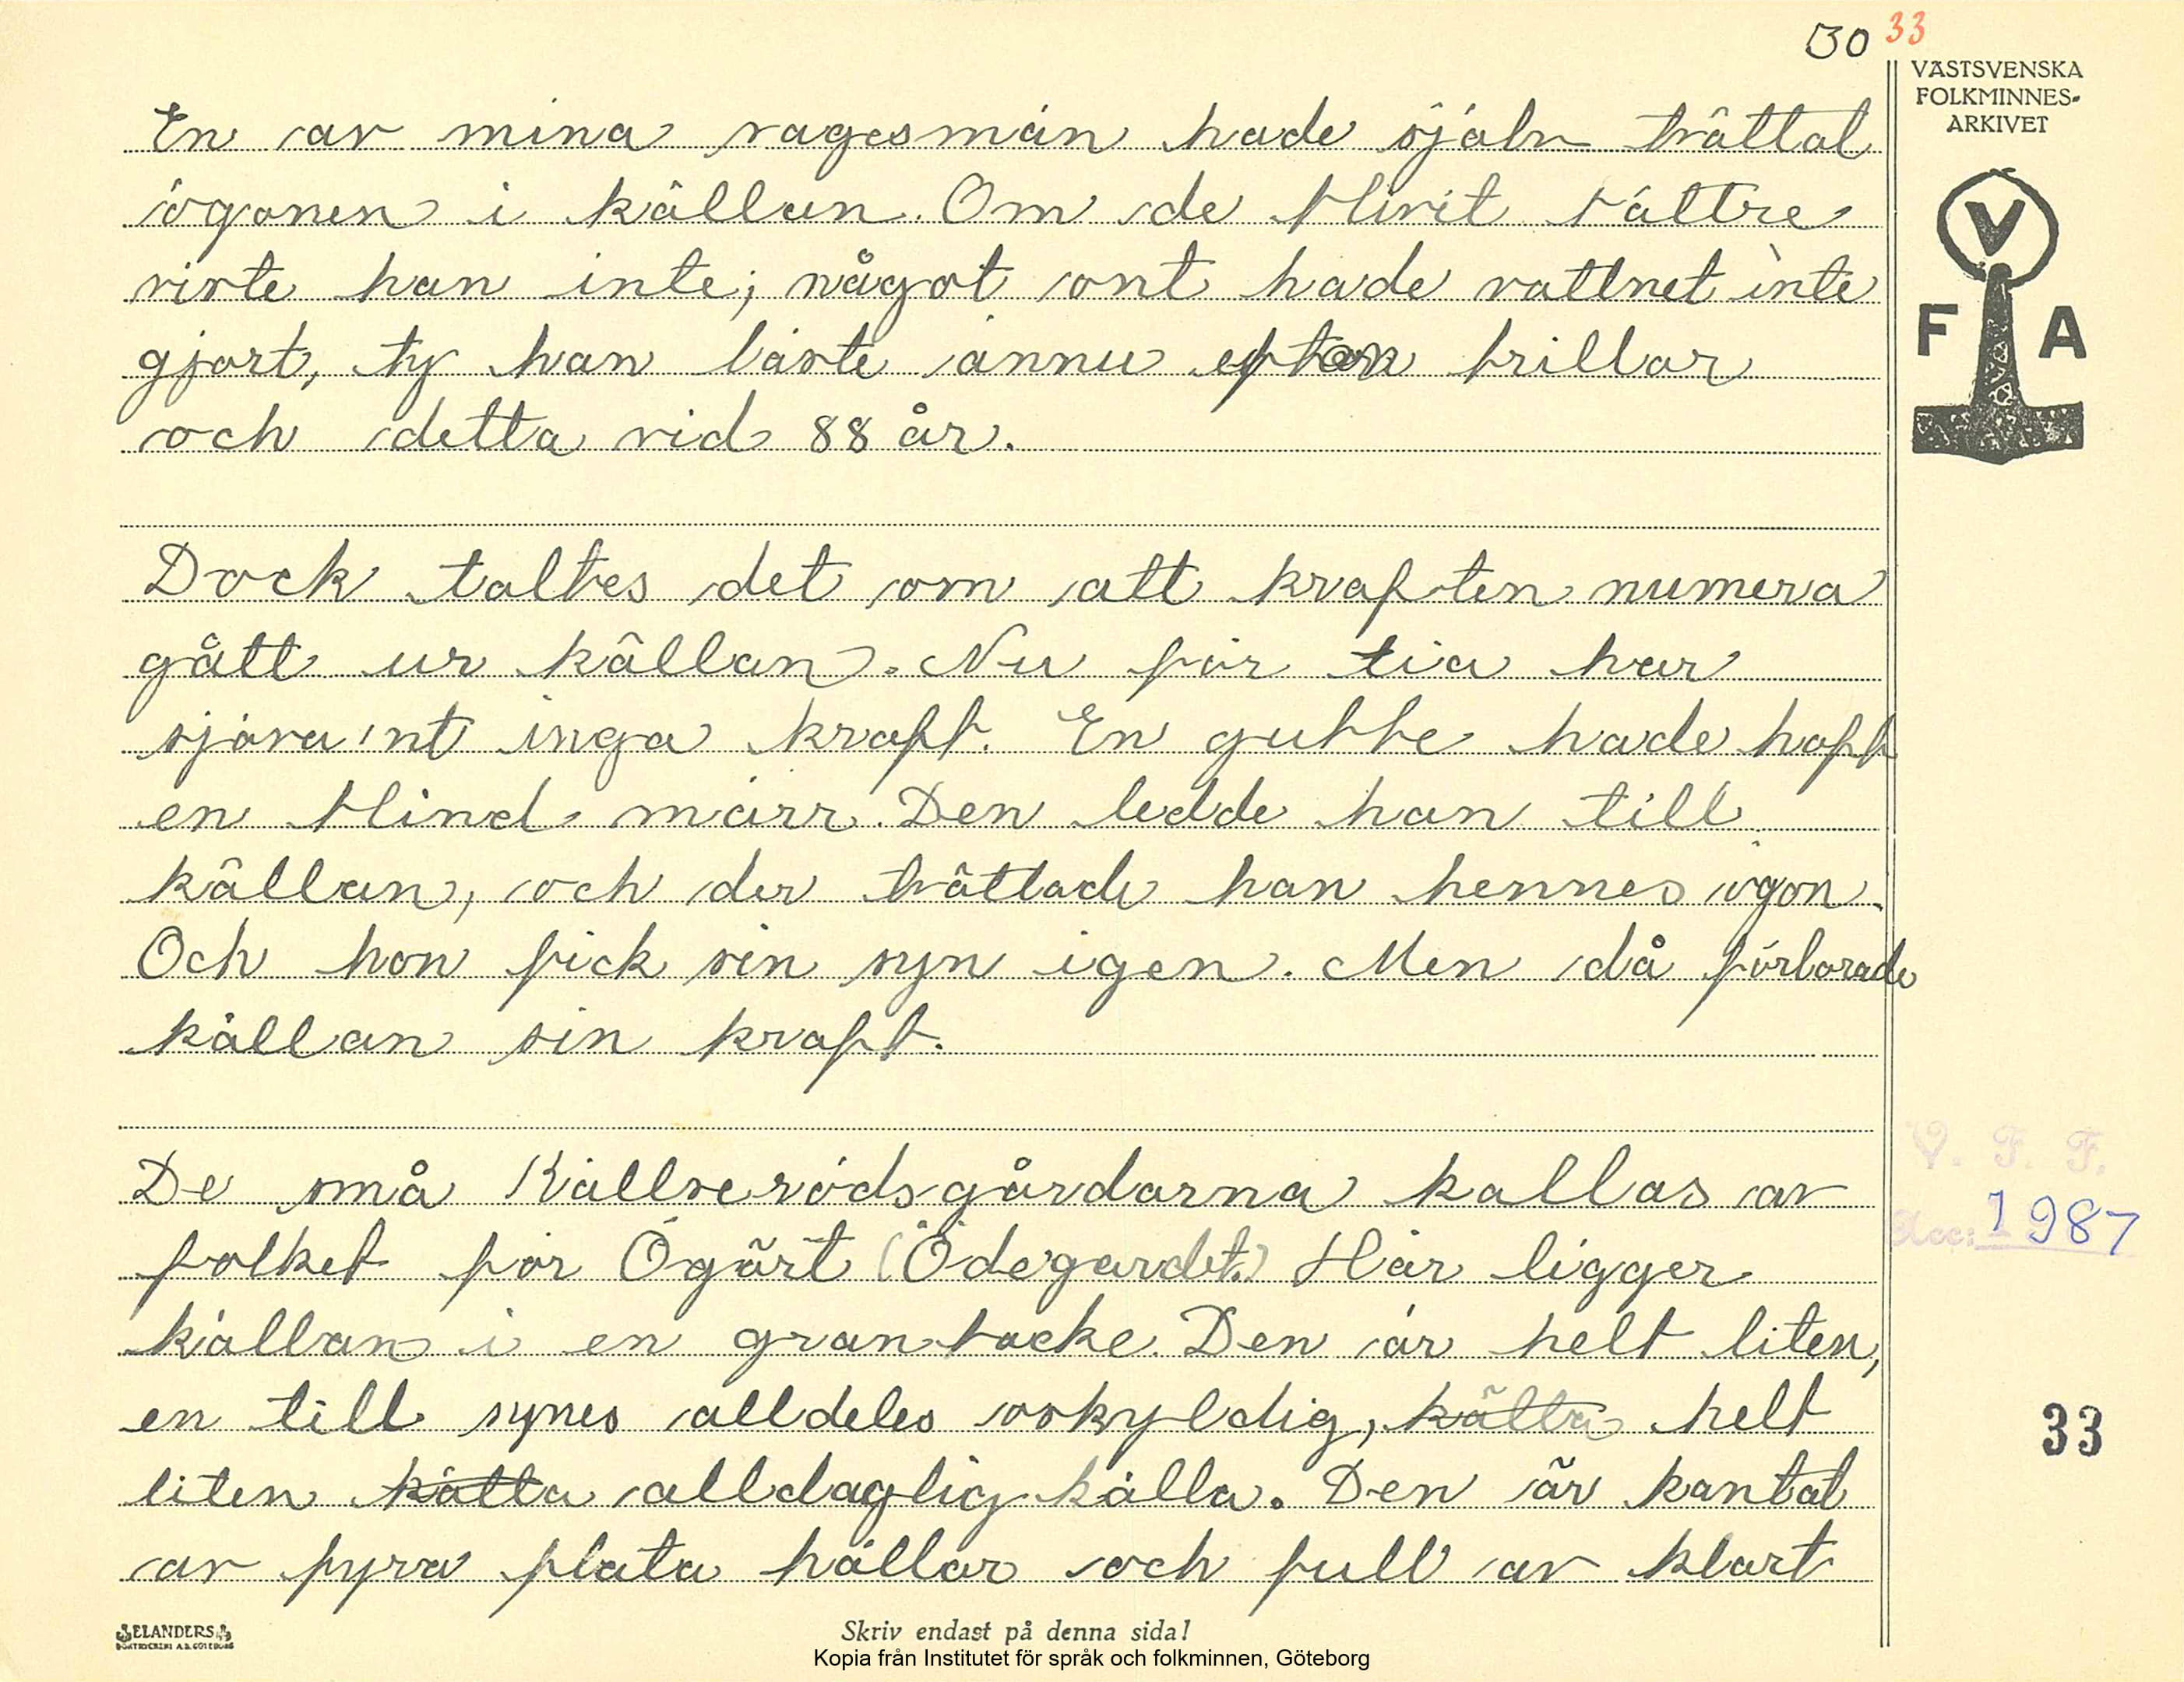 30 33
VÄSTSVENSKA
FOLKMINNES-
ARKIVET
V
F A
En av mina sagesmän hade själv tvättat
ögonen i källan. Om de blivit bättre
visste han inte; något ont hade vattnet inte
gjort, ty han läste ännu utan brillor
och detta vid 88 år.
Dock taltes det om att kraften numera
gått ur källan. Nu för tia har
sjöra int inga kraft. En gubbe hade haft
en blind märr. Den ledde han till
källan, och der tvättade han hennes ögon.
Och hon fick sin syn igen. Men då förlorade
källan sin kraft.
De små Källseröds gårdarna kallas av
folket för Ögärt (Ödegärdet.) Här ligger
källan i en granbacke. Den är helt liten,
en till synes alldeles oskyldig, källa helt
liten källa alldaglig källa. Den är kantat
av fyra flata hällar och full av klart
V. F. F.
Acc: 1987
33
ELANDERS
BOKTRYCKERI A.B. GÖTEBORG
Skriv endast på denna sida!
Kopia från Institutet för språk och folkminnen, Göteborg